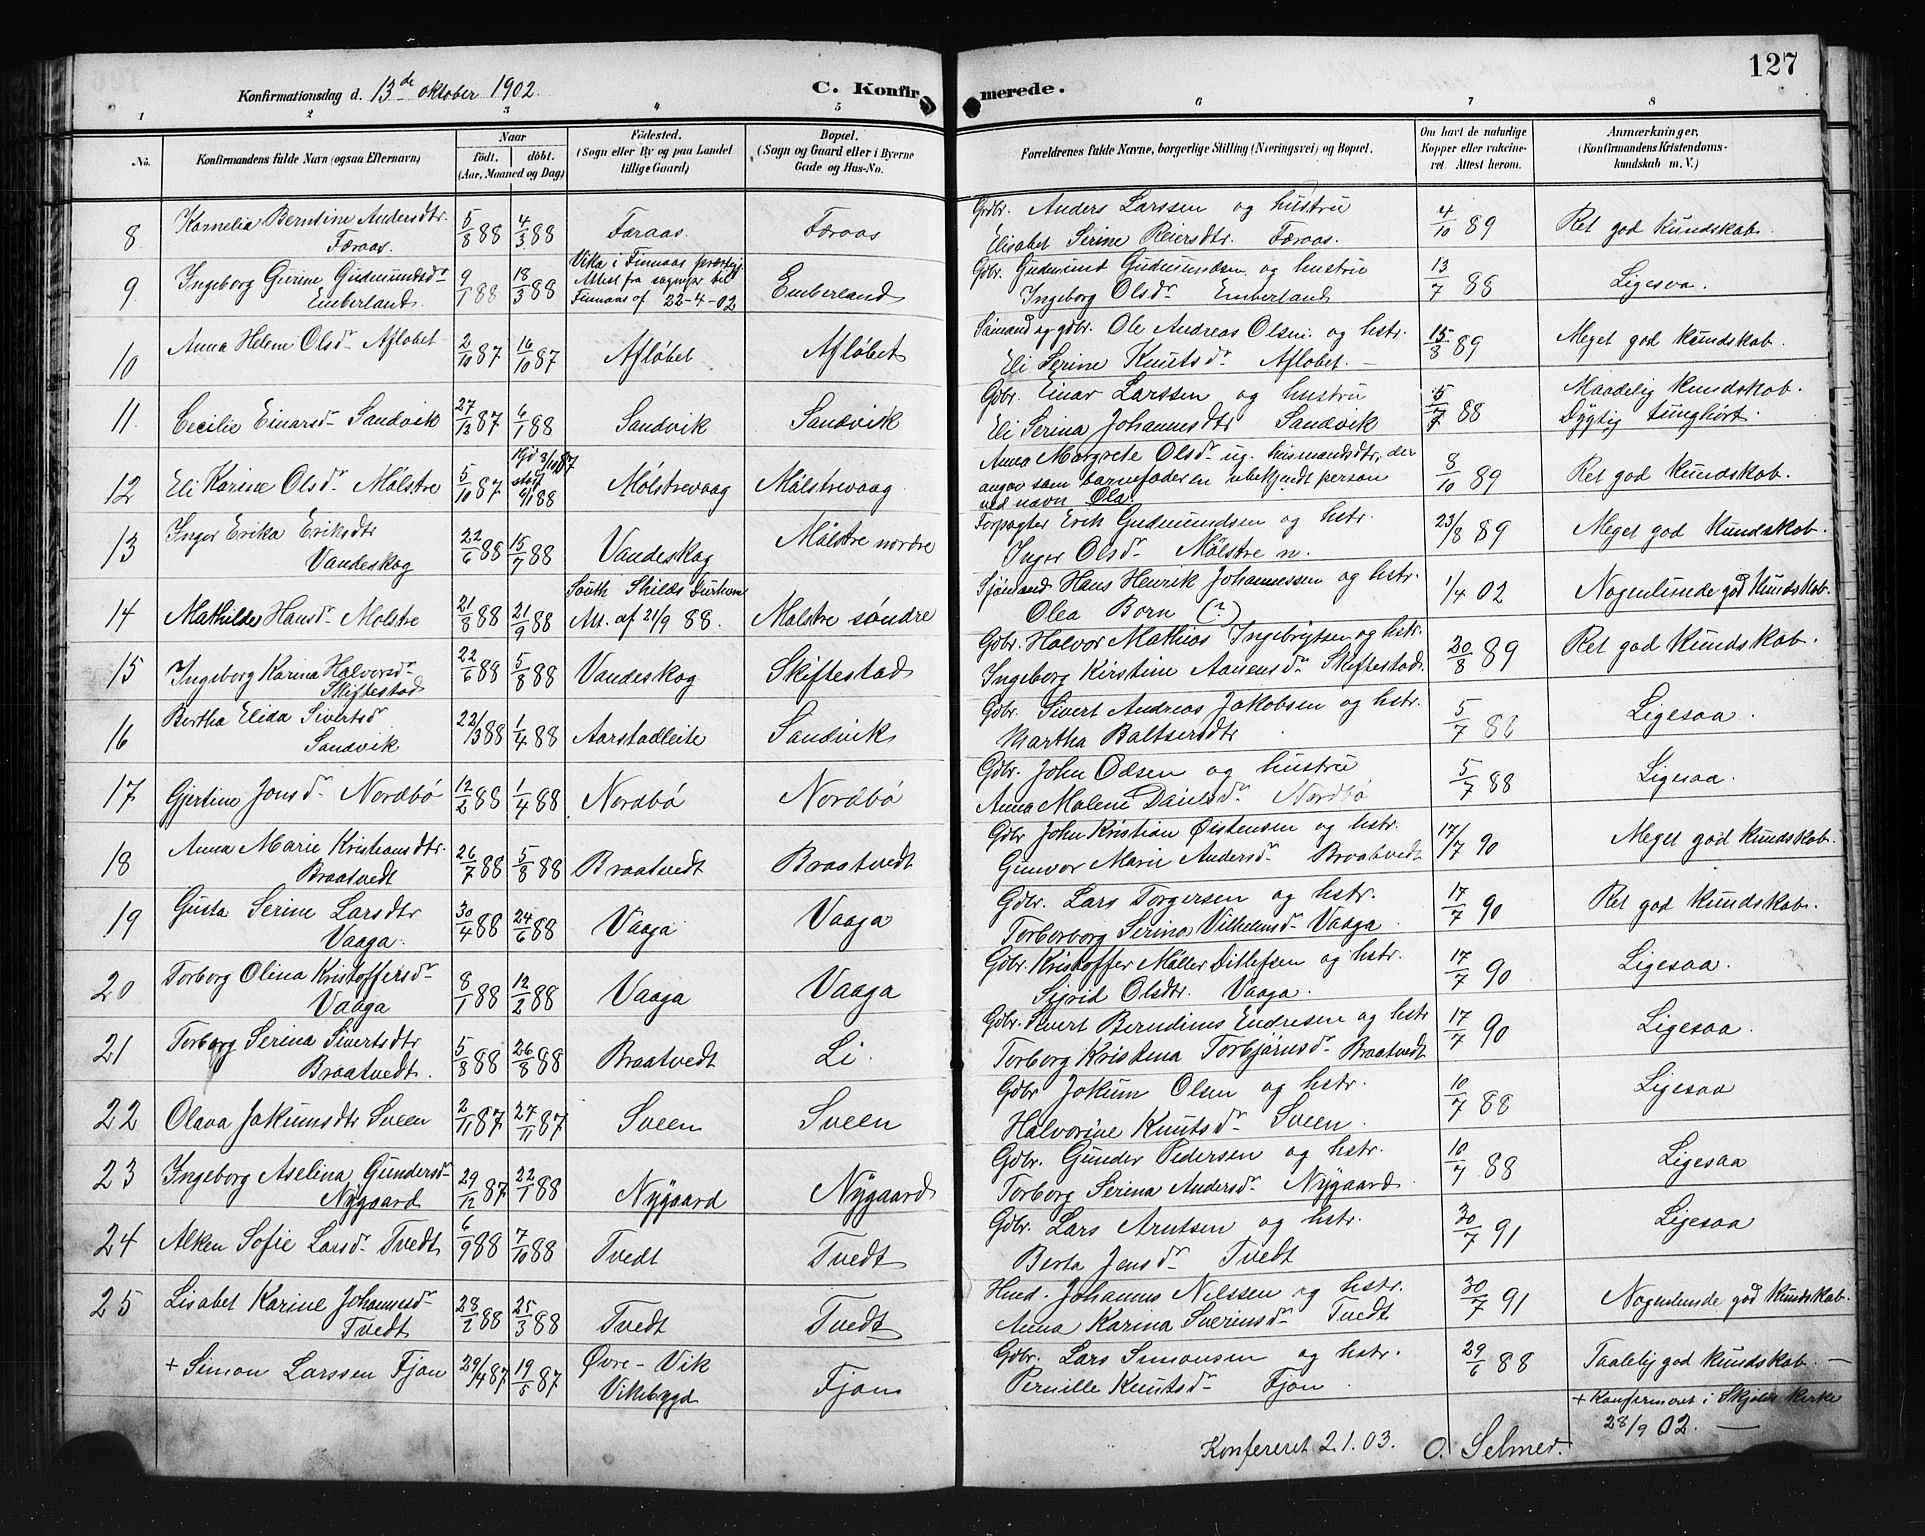 127
Konfirmationsdag d. 13de oktober 1902.
C. Konfirmerede.
1 2 3 4 5 6 7 8
No.
Konfirmandens fulde Navn (ogsaa Efternavn)
Naar
født. døbt.
(Aar, Maaned og Dag)
Fødested.
(Sogn eller By og paa Landet
tillige Gaard)
Bopæl.
(Sogn og Gaard eller i Byerne
Gade og Hus-No.
Forældrenes fulde Navne, borgerlige Stilling (Næringsvei) og Bopæl.
Om havt de naturlige
Kopper eller vakcine-
ret Attest herom.
Anmærkninger,
(Konfirmandens Kristendoms-
kundskab m. V.)
8 Kornelia Berntine Andersdtr. Færaas. 5/8 88 4/3 88 Færaas. Færaas Grdbr. Anders Larssen og hustru
Elisabet Serine Reiersdtr. Færaas. 4/10 89 Ret god kundskab.
9 Ingeborg Gurine Gudmundsdr Emberland. 9/1 88 18/3 88 Vika i Finnaas præstegj.
Attest fra sognepr. til
Finnaas af 22-4-02 Emberland Gdbr. Gudmund Gudmundsen og hustru
Ingeborg Olsdr Emberland 13/7 88 Ligesaa.
10 Anna Helene Olsdr Afløbet 2/10 87 16/10 87 Afløbet Afløbet Sømand og gdbr. Ole Andreas Olsen og hstr.
Eli Serine Knutsdr Afløbet. 15/8 89 Meget god kundskab.
11 Cecilie Einarsdr Sandvik 27/12 87 6/1 88 Sandvik Sandvik Gdbr. Einar Larssen og hustru
Eli Serina Johannesdtr Sandvik 5/7 88 Maadelig kundskab.
Dygtig tunghørt.
12 Eli Karine Olsdr Mølstre 5/10 87 Hjd 3/10 87
stadf
6/1 88 Mølstrevaag Mølstrevaag. Anna Margrete Olsdr ug. husmandsdtr, der
angav som barnefader en ubekjendt person
ved navn Ola. 8/10 89 Ret god kundskab.
13 Inger Erika Eriksdtr Vandeskog 22/6 88 15/7 88 Vandeskog Mølstre nordre Forpagter Erik Gudmundsen og hstr.
Inger Olsdr Mølstre n. 23/8 89 Meget god kundskab.
14 Mathilde Hansdr Molstre 21/8 88 21/9 88 South Shilds Durham
Att. af 21/9 88. Mølstre søndre Sjömand Hans Henrik Johannessen og hstr.
Olea Born (?) 1/4 02 Nogenlunde god kundskab.
15 Ingeborg Karina Halvorsdr Skiftestad 22/6 88 5/8 88 Vandeskog Skiftestad Gdbr. Halvor Mathias Ingebrigtsen og hstr.
Ingeborg Kirstine Aanensdr Skiftestad 20/8 89 Ret god kundskab.
16 Bertha Elida Sivertsdr Sandvik 22/3 88 1/4 88 Aarstadleite Sandvik Gdbr. Sivert Andreas Jakobsen og hstr.
Martha Baltsersdtr 5/7 88 Ligesaa.
17 Gjertine Jonsdr Nordbø 12/2 88 1/4 88 Nordbø Nordbø Gdbr. John Odsen og hustru
Anna Malene Danielsdr Nordbø 5/7 88 Ligesaa.
18 Anna Marie Kristiansdtr. Braatvedt 26/7 88 5/8 88 Braatvedt Braatvedt Gdbr John Kristian Øistensen og hstr.
Gunvor Marie Andersdr Braatvedt 17/7 90 Meget god kundskab.
19 Gusta Serine Larsdtr Vaaga. 30/4 88 24/6 88 Vaaga Vaaga Gdbr. Lars Torgersen og hstr.
Torborborg Serina Vilhelmsdr Vaaga 17/7 90 Ret god kundskab.
20 Torborg Olina Kristoffersdr Vaaga 8/1 88 12/2 88 Vaaga Vaaga Gdbr. Kristoffer Møller Ditlefsen og hstr.
Sigrid Olsdtr. Vaaga. 17/7 90 Ligesaa.
21 Torborg Serina Sivertsdtr Braatvedt. 5/8 88 26/8 88 Braatvedt Li. Gdbr. Sivert Berndinus Endresen og hstr
Torborg Kristina Torbjørnsdr Braatvedt 17/7 90 Ligesaa.
22 Olava Jakumsdtr Sveen 2/11 87 27/11 87 Sveen Sveen Gdbr Jokum Olsen og hstr.
Halvorine Knutsdr Sveen. 10/7 88 Ligesaa
23 Ingeborg Aselina Gundersdr Nygaard 29/12 87 22/1 88 Nygaard Nygaard Gdbr. Gunder Pedersen og hstr.
Torborg Serina Andersdr Nygaard. 10/7 88 Ligesaa
24 Alken Sofie Larsdr Tvedt 6/9 88 7/10 88 Tvedt Tvedt Gdbr. Lars Arntsen og hstr.
Berta Jensdr Tvedt 30/7 91 Ligesaa
25 Lisabet Karine Johannesdr Tvedt 28/2 88 25/3 88 Tvedt Tvedt Hmd. Johannes Nilssen og hstr.
Anna Karina Sverinsdr Tvedt 30/7 91 Nogenlunde god kundskab.
+ Simon Larssen Fjon 29/4 87 19/5 87 Øvre-Vik
Vikebygd Fjon Gdbr. Lars Simonsen og hstr.
Pernille Knutsdr Fjon. 29/6 88 Taalelig god kundskab. —
+ Konfermeret i Skjolds kirke
28/9 02. —
Konfereret 2.1.03. O. Selmer.